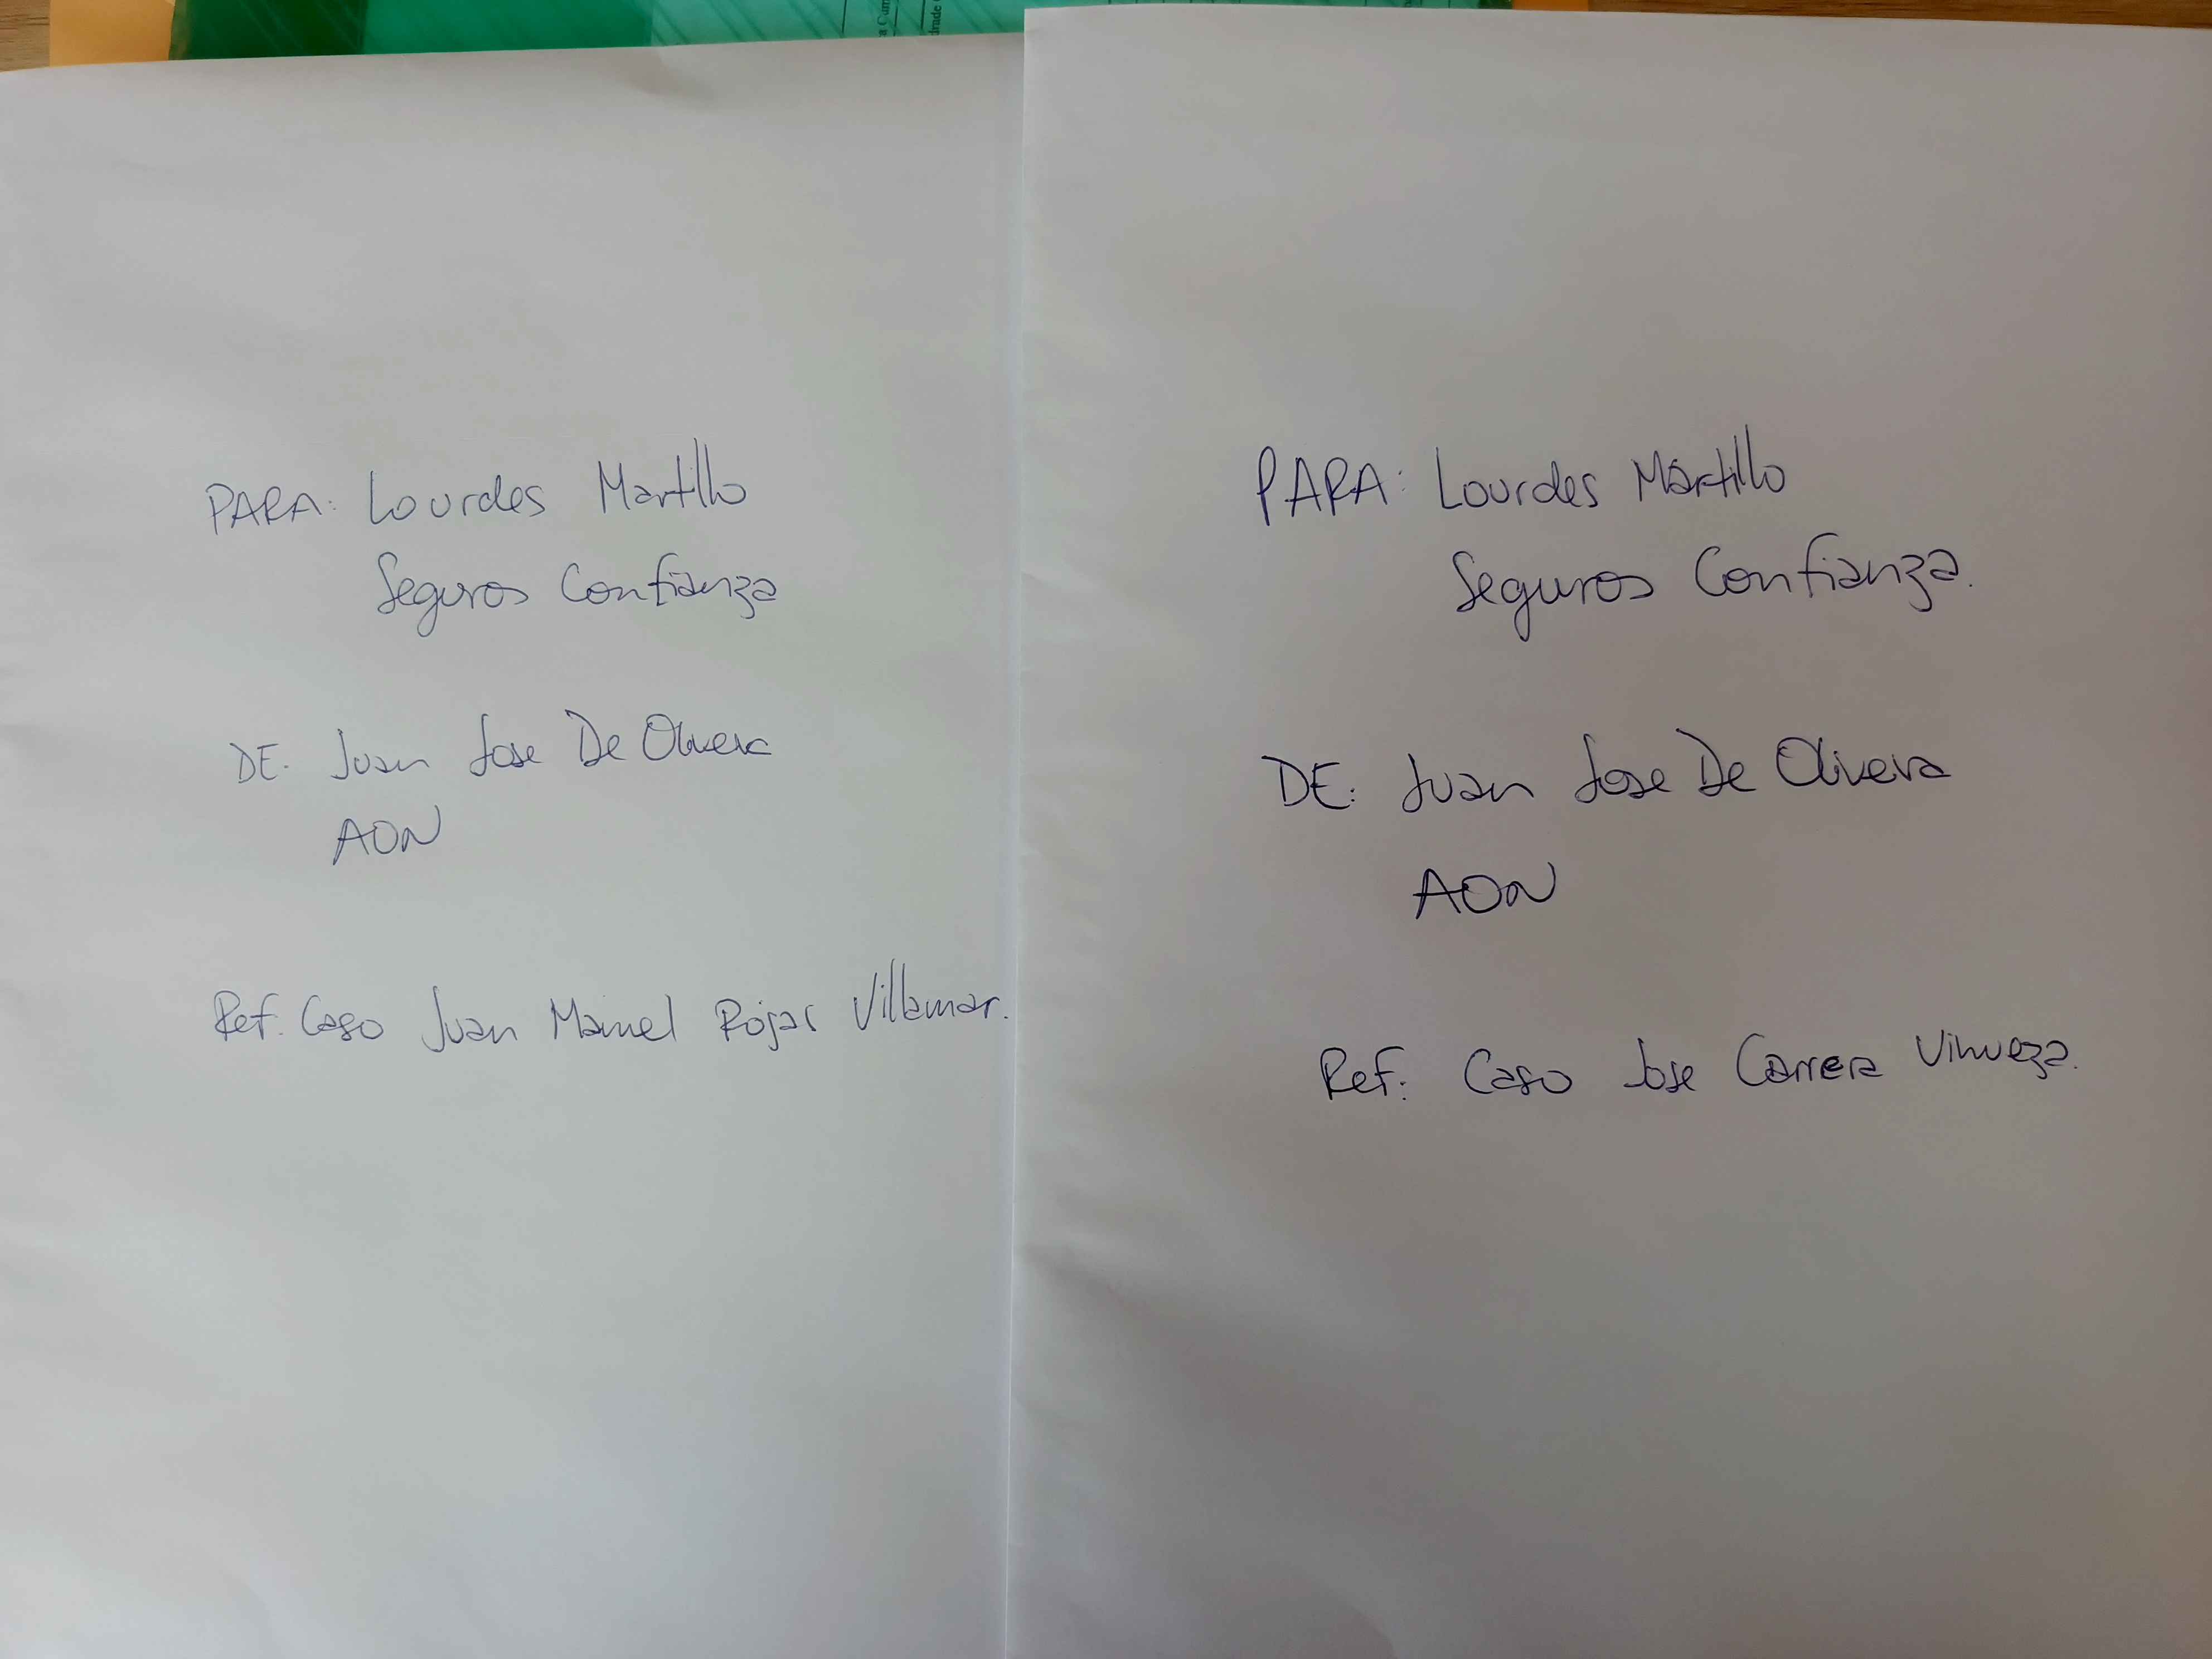 PARA: Lourdes Martillo
Seguros Confianza
DE. Juan Jose De Olivera
AON
Ref. Caso Juan Manuel Rojas Villamar.
PARA: Lourdes Martillo
Seguros Confianza.
DE: Juan Jose De Olivera
AON
Ref: Caso Jose Carrera Vinueza.